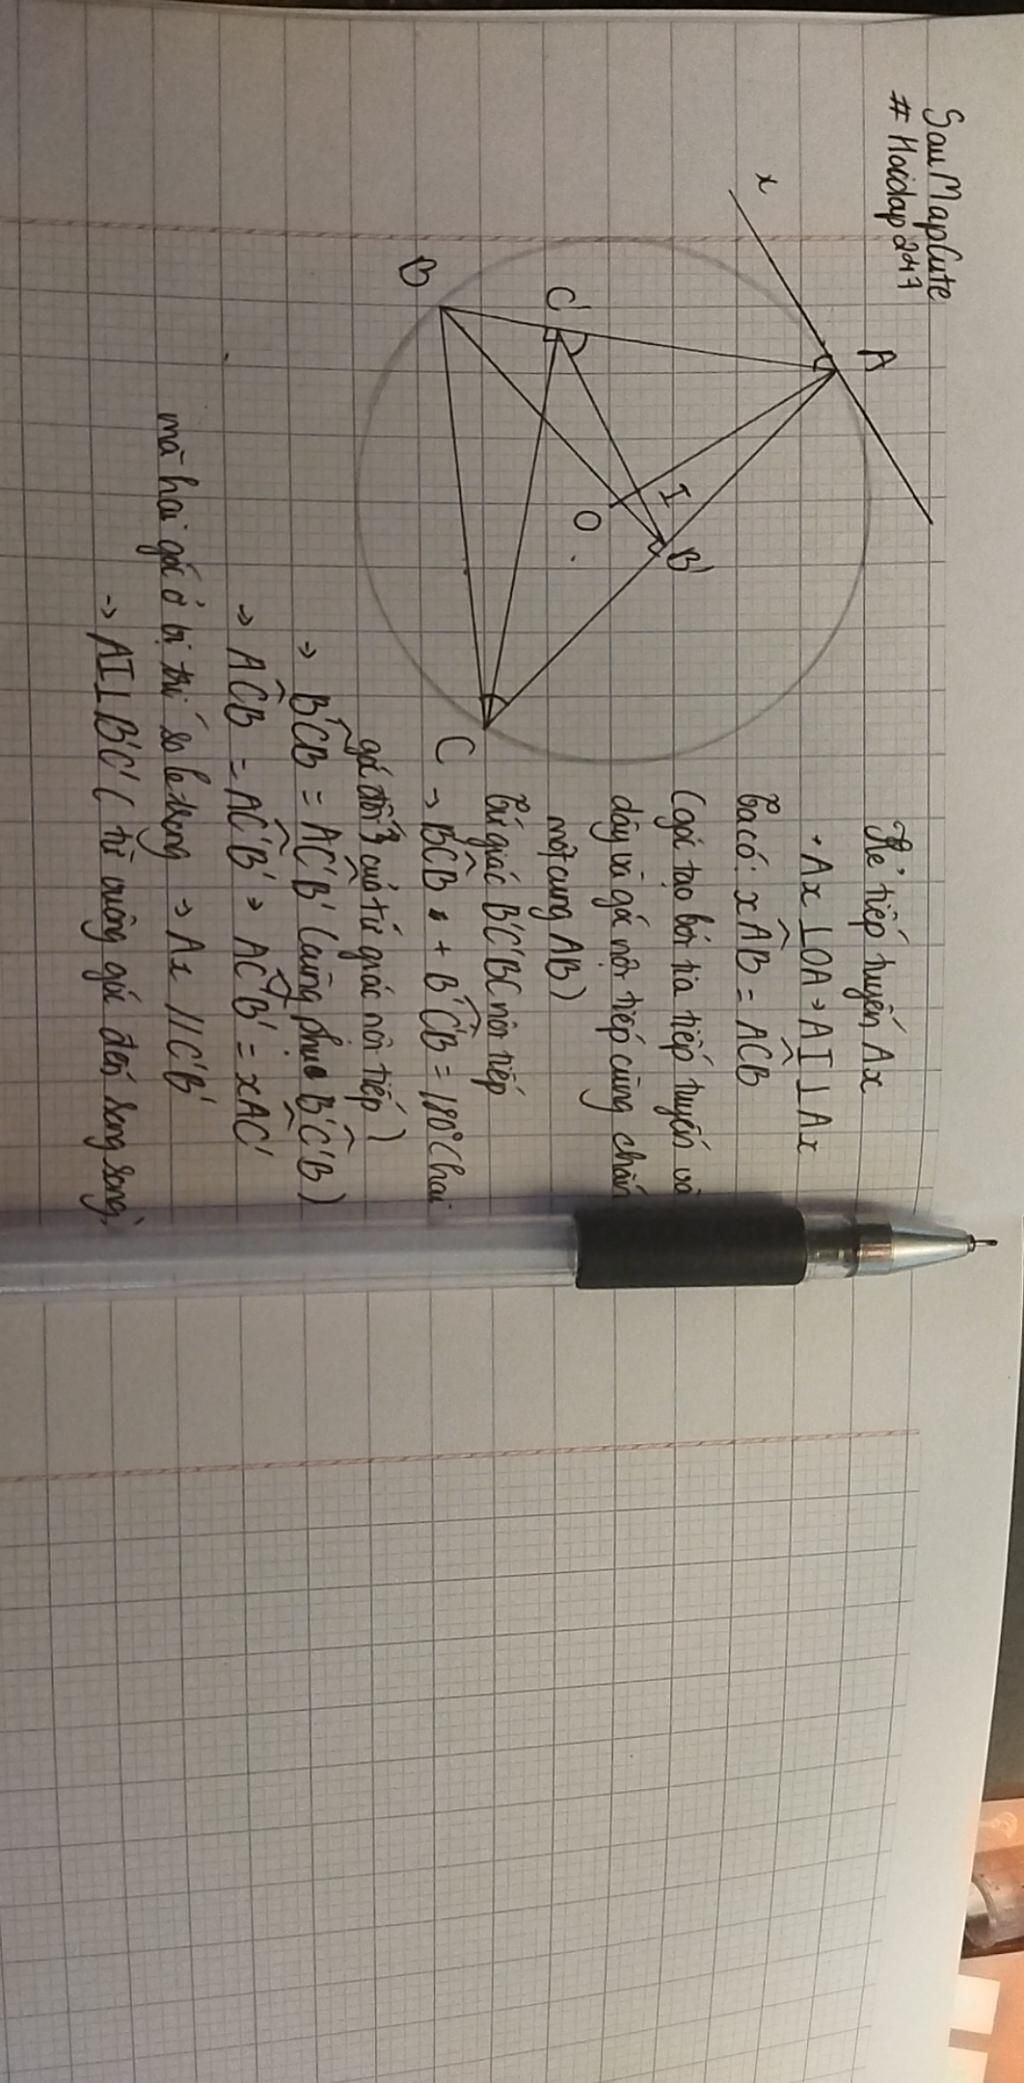 SauMapCute
# Hoidap247
x
A
B
C'
I
O
B'
C
Kẻ tiếp tuyến Ax
• Ax ⊥ OA → AI ⊥ Ax
Ta có: xÂB = AĈB
(góc tạo bởi tia tiếp tuyến và
dây và góc nội tiếp cùng chắn
một cung AB)
Tứ giác B'C'BC nội tiếp
→ B'ĈB + B'Ĉ'B = 180° (hai
góc đối của tứ giác nội tiếp)
→ B'ĈB = AĈ'B' (cùng phụ B'Ĉ'B)
→ AĈB = AĈ'B' → AĈ'B' = xÂC'
mà hai góc ở vị trí so le trong → Ax // C'B'
→ AI ⊥ B'C' (từ vuông góc đến song song)